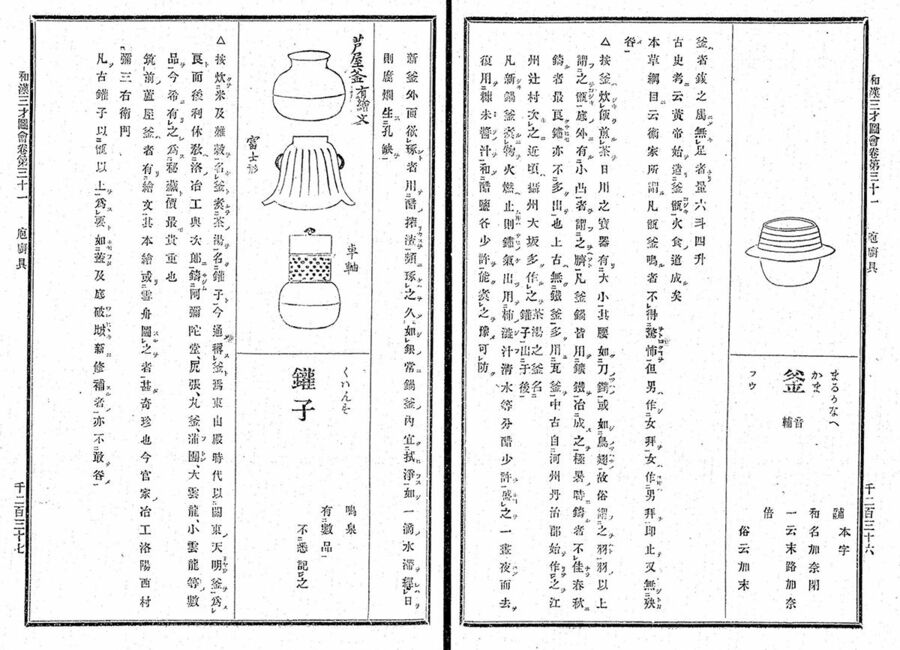 和漢三才圖會卷第三十一 庖廚具 千二百三十六
まろかなへ
かま
釜 音輔
フウ
本字
和名加奈閉
一云末路加奈
倍
俗云加末
釜者鍑之屬無足者量六斗四升
古史考云黃帝始造釜甑火食道成矣
本草綱目云術家所謂凡甑釜鳴者不得驚怖但男作女拜女作男拜即止又無殃
咎
△按釜炊飯煎茶日用之寶器有大小其腰如刀鐔或如鳥翅故俗謂之羽羽以上
謂之甑底外有小凸者謂之臍凡釜鍋皆用鍑鐵冶成之極暑時鑄者不佳春秋
鑄者最良鏽亦不多出也上古無鐵釜多用瓦釜中古自河州丹治郡始作之江
州辻村次之近頃攝州大坂多作之茶湯之釜名鑵子出于後
凡新鍋釜煮物火燃止則鏽氣出用柿澁汁清水等分醋少許盛之一晝夜而去
復用糠未醬汁和醋鹽各少許能煮之豫可防
新釜外面欲琢者用醋搾渣頻琢之久如銀常鍋釜內宜拭淨如一滴水滯經日
則腐爛生孔缺
芦屋釜有繪文
富士形
車軸
くはんす
鑵子
鳴泉
有數品
不悉記之
△按炊米及雜穀名釜煮茶湯名鑵子今通稱釜焉東山殿時代以關東天明釜爲
良而後利休敎冶工與次郞鑄阿彌陀堂、尻張、丸釜、蒲團、大雲龍、小雲龍等數
品今希有之爲秘藏價最貴重也
筑前蘆屋釜者有繪文其本繪或雪舟圖之者甚奇珍也今官家冶工洛陽西村
彌三右衞門
凡古鑵子以甑以上爲要如蓋及底破壞新修補者亦不敢咎
和漢三才圖會卷第三十一 庖廚具 千二百三十七